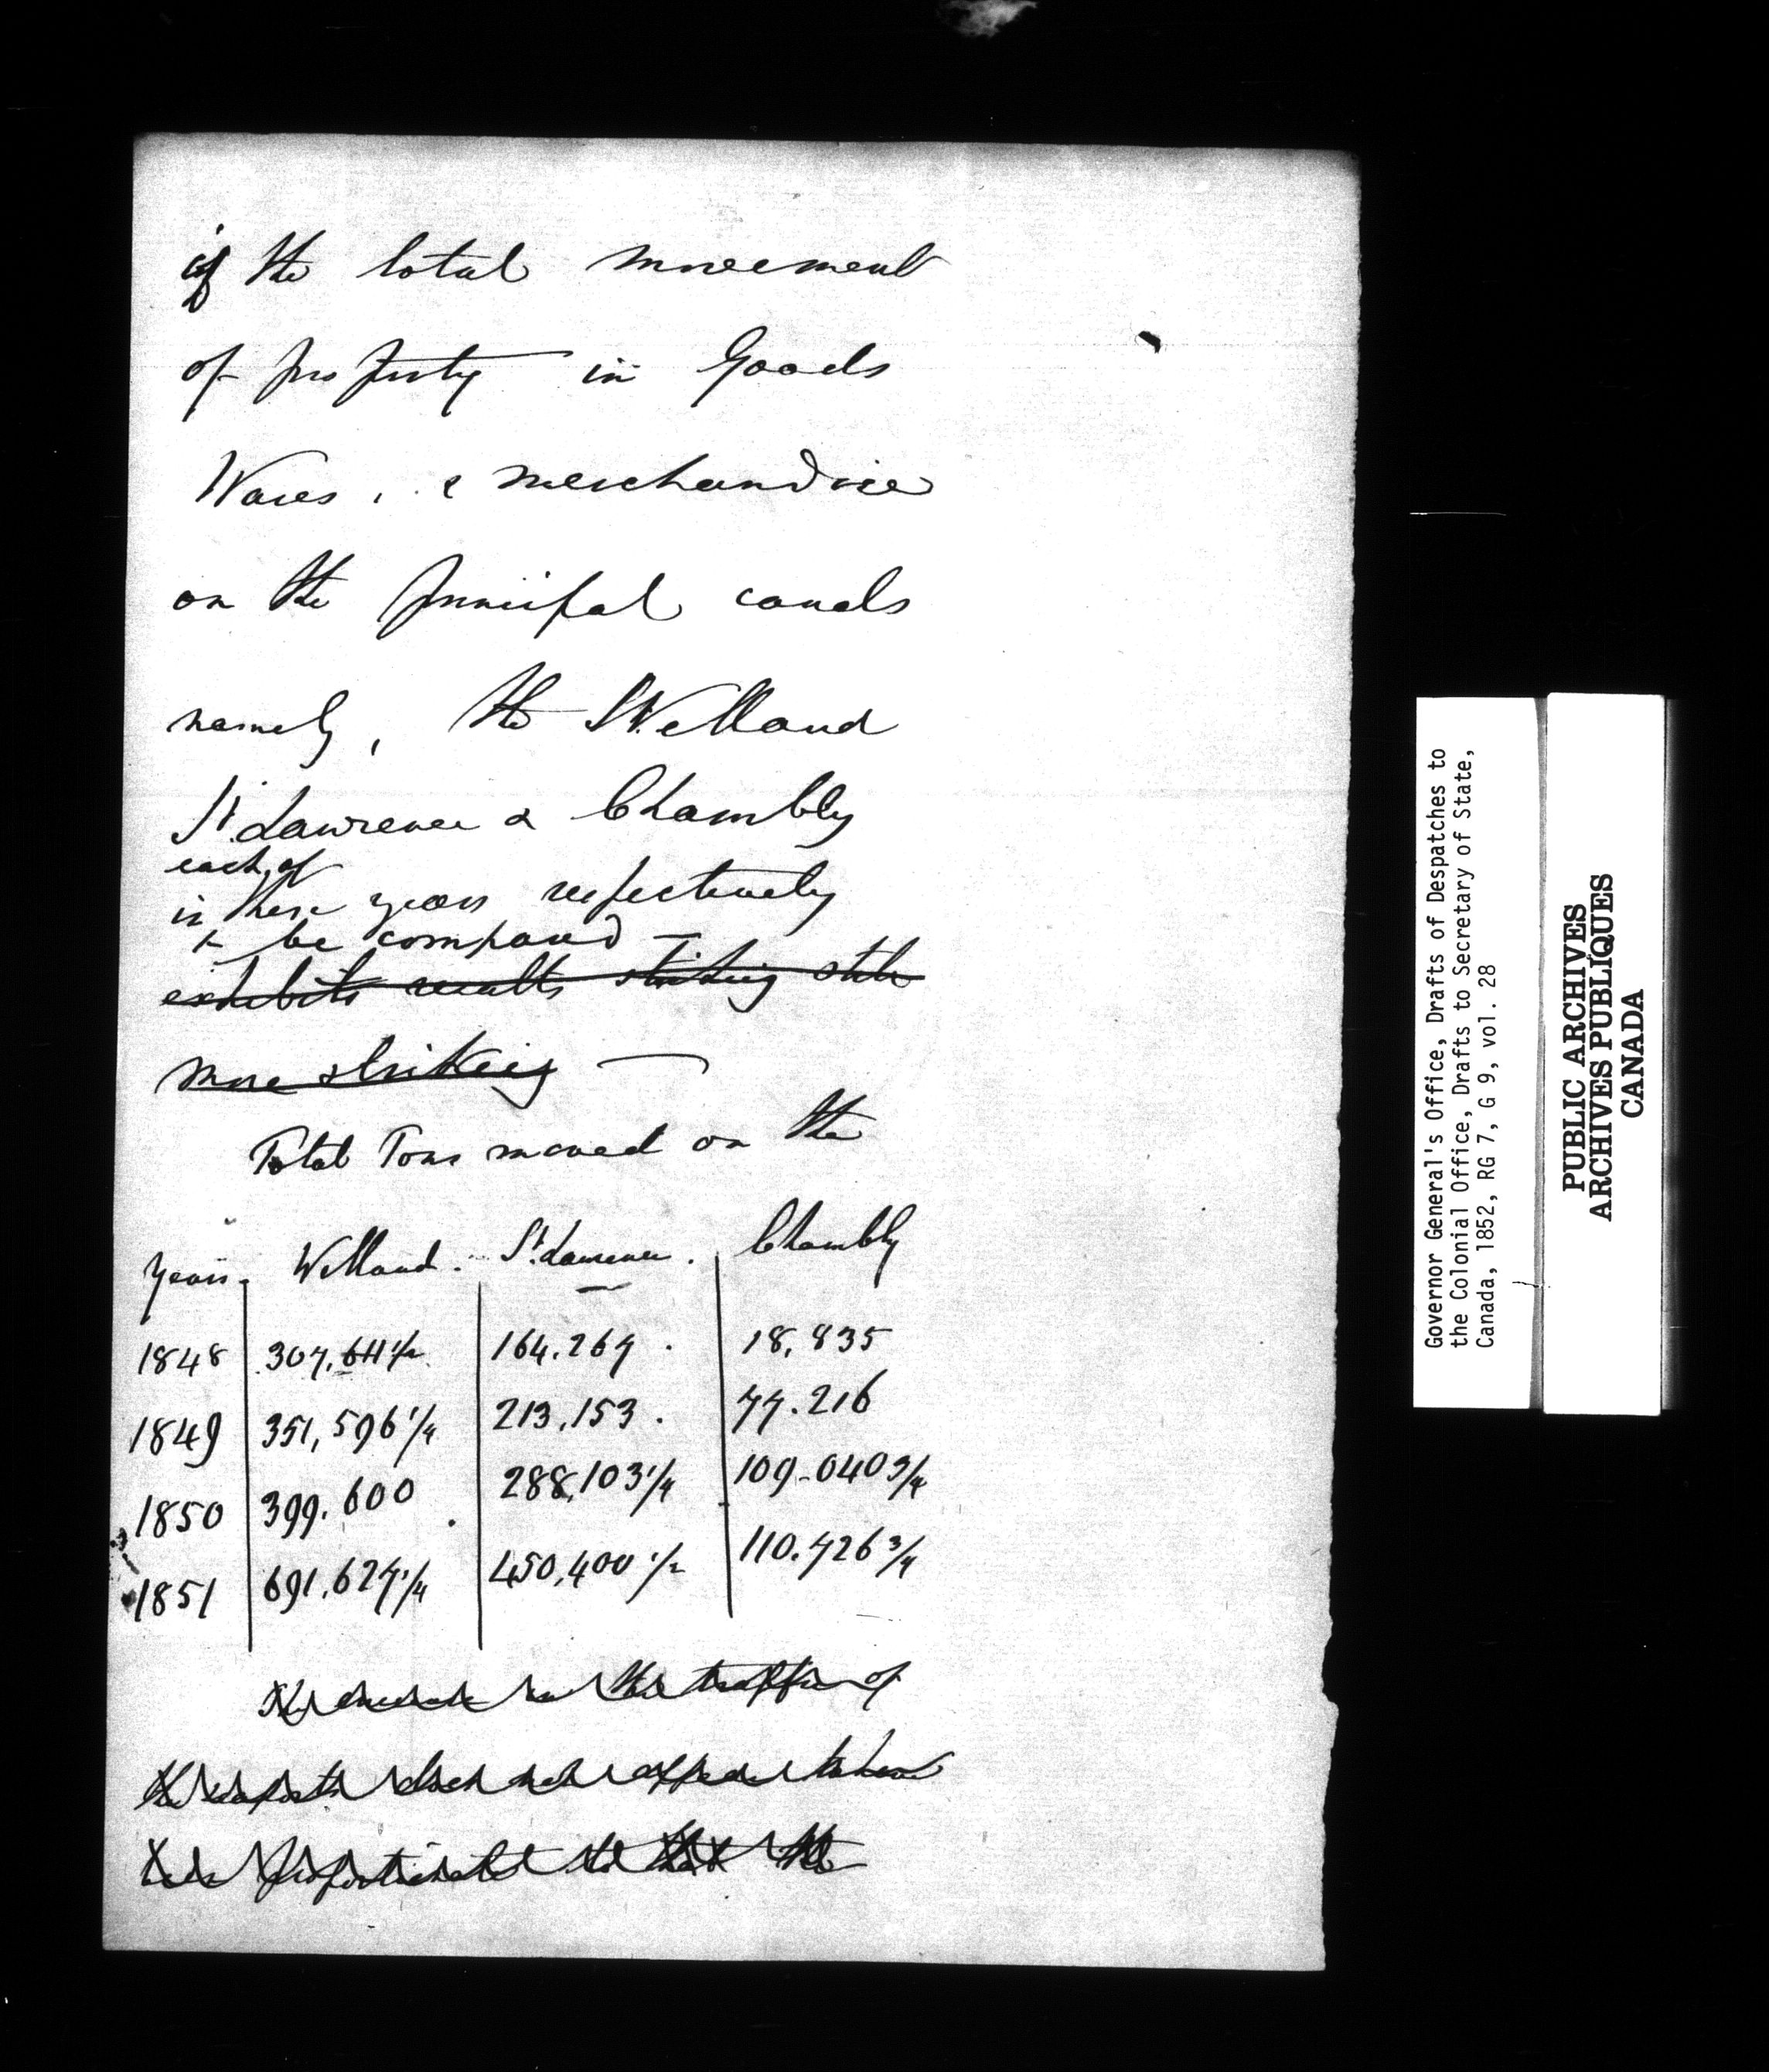 if the total movement
of property in Goods
Wares, & merchandise
on the principal canals
namely, the Welland
St. Lawrence & Chambly
each of
in these years respectively
be compared —
exhibits results striking still
more striking —
Total Tons moved on the
Years. Welland. St. Lawrence. Chambly
1848 307,611 1/2 164.267 18,835
1849 351,596 1/4 213,153. 77.216
1850 399.600 288,103 1/4 109-040 3/4
1851 691.627 1/4 450,400 1/2 110.726 3/4
The increase in the traffic of
the exports does not appear to have
been proportionate to that the
Governor General's Office, Drafts of Despatches to
the Colonial Office, Drafts to Secretary of State,
Canada, 1852, RG 7, G 9, vol. 28
PUBLIC ARCHIVES
ARCHIVES PUBLIQUES
CANADA